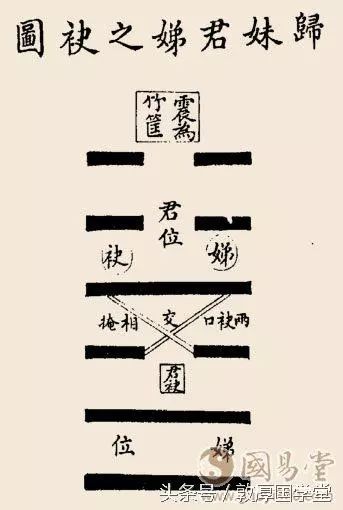 歸妹君娣之袂圖
震為
竹筐
君位
娣 袂
兩袂口 交 相掩
君袂
娣 位
國易堂
头条号／敦厚国学堂